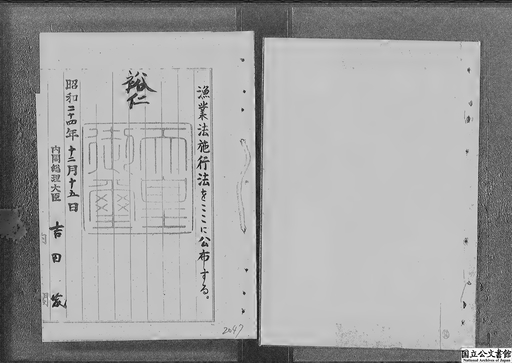 漁業法施行法をここに公布する。
裕仁
天皇御璽
昭和二十四年十二月十五日
内閣総理大臣
吉田茂
2047
国立公文書館
National Archives of Japan